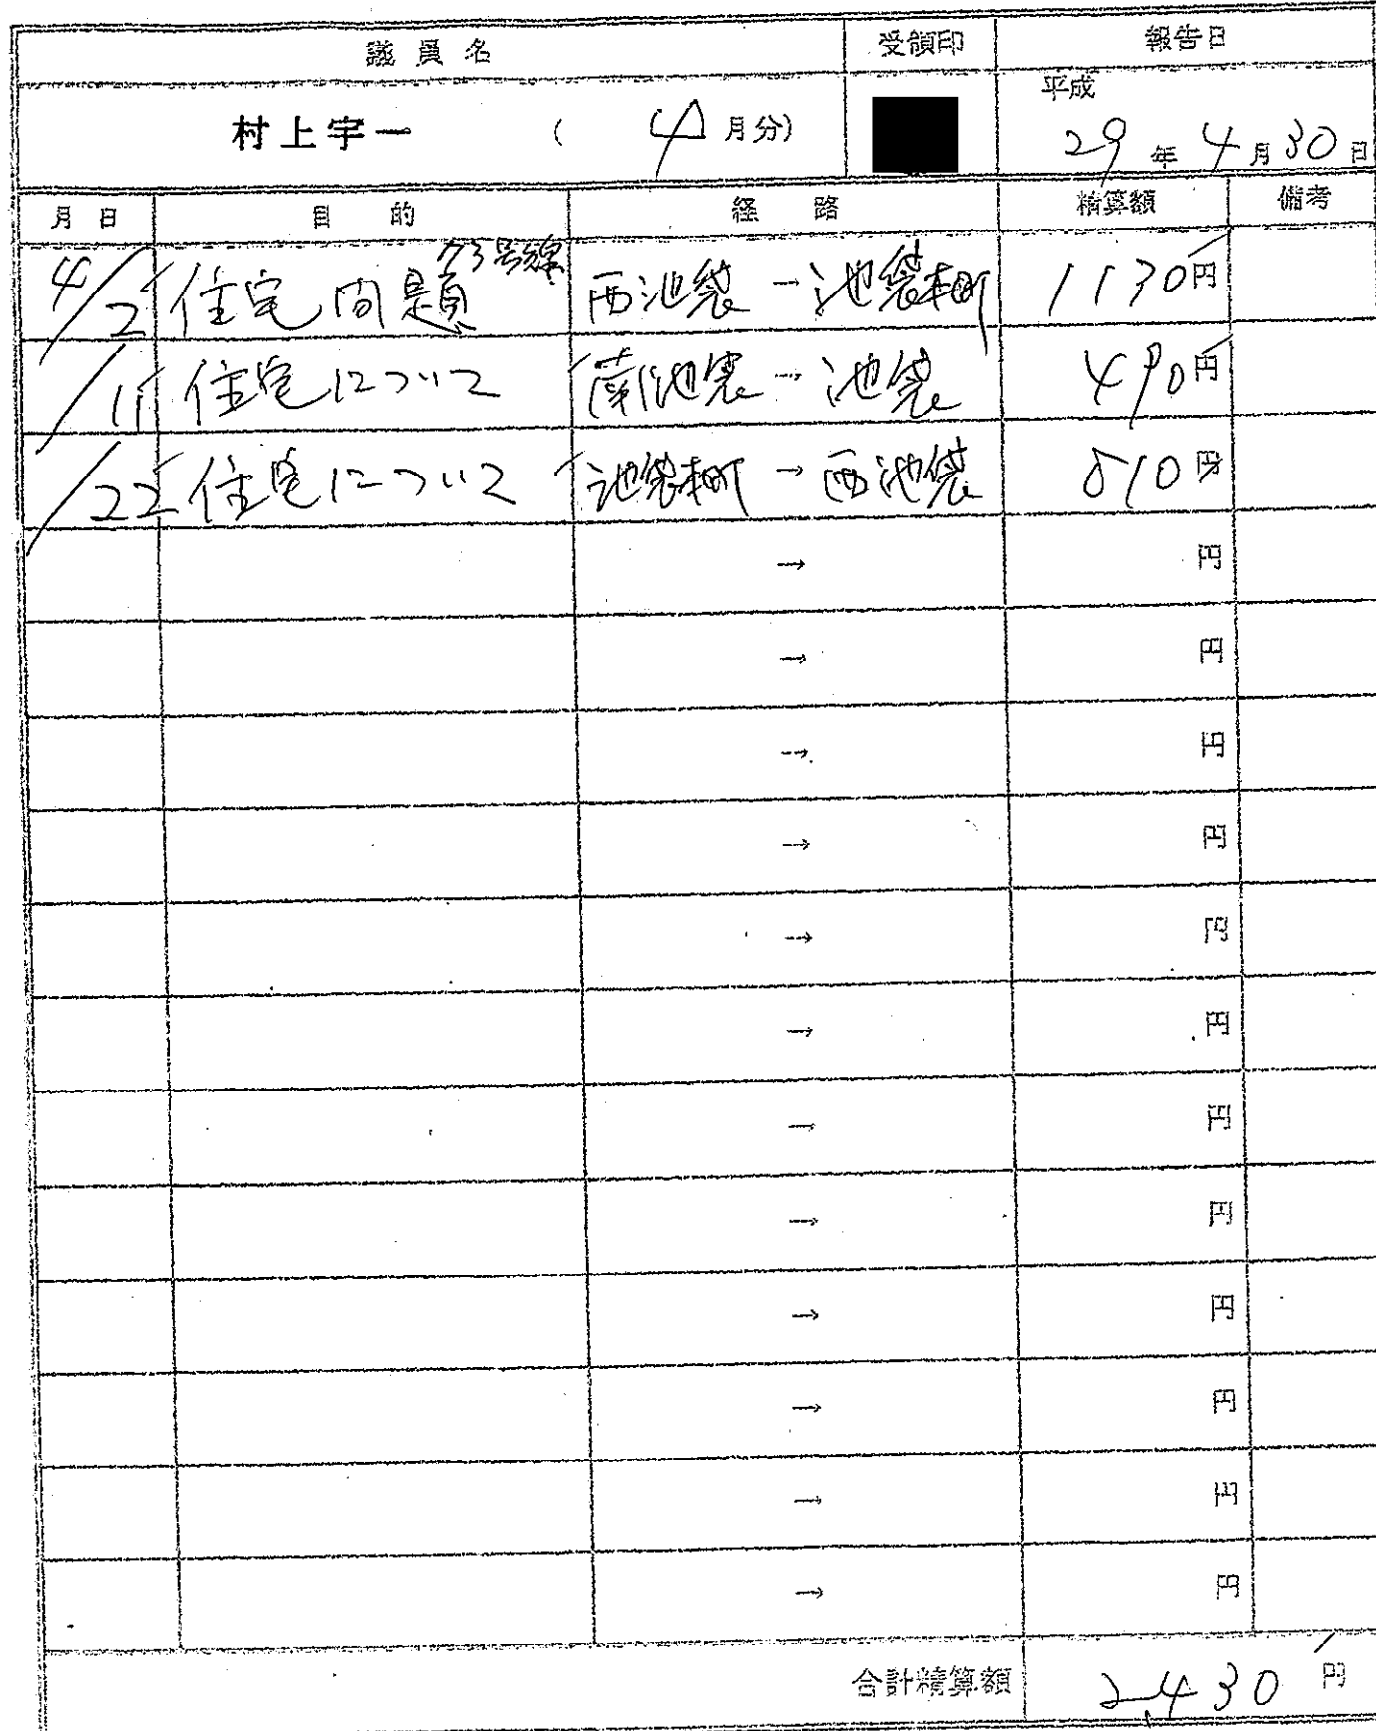 議員名 受領印 報告日
村上宇一 ( 4月分) 平成 29年4月30日
月日 目的 経路 精算額 備考
4/2 住宅問題 73号線 西池袋 → 池袋本町 1130円
/11 住宅について 南池袋 → 池袋 490円
/22 住宅について 池袋本町 → 西池袋 810円
→ 円
→ 円
→ 円
→ 円
→ 円
→ 円
→ 円
→ 円
→ 円
→ 円
→ 円
→ 円
合計精算額 2430円